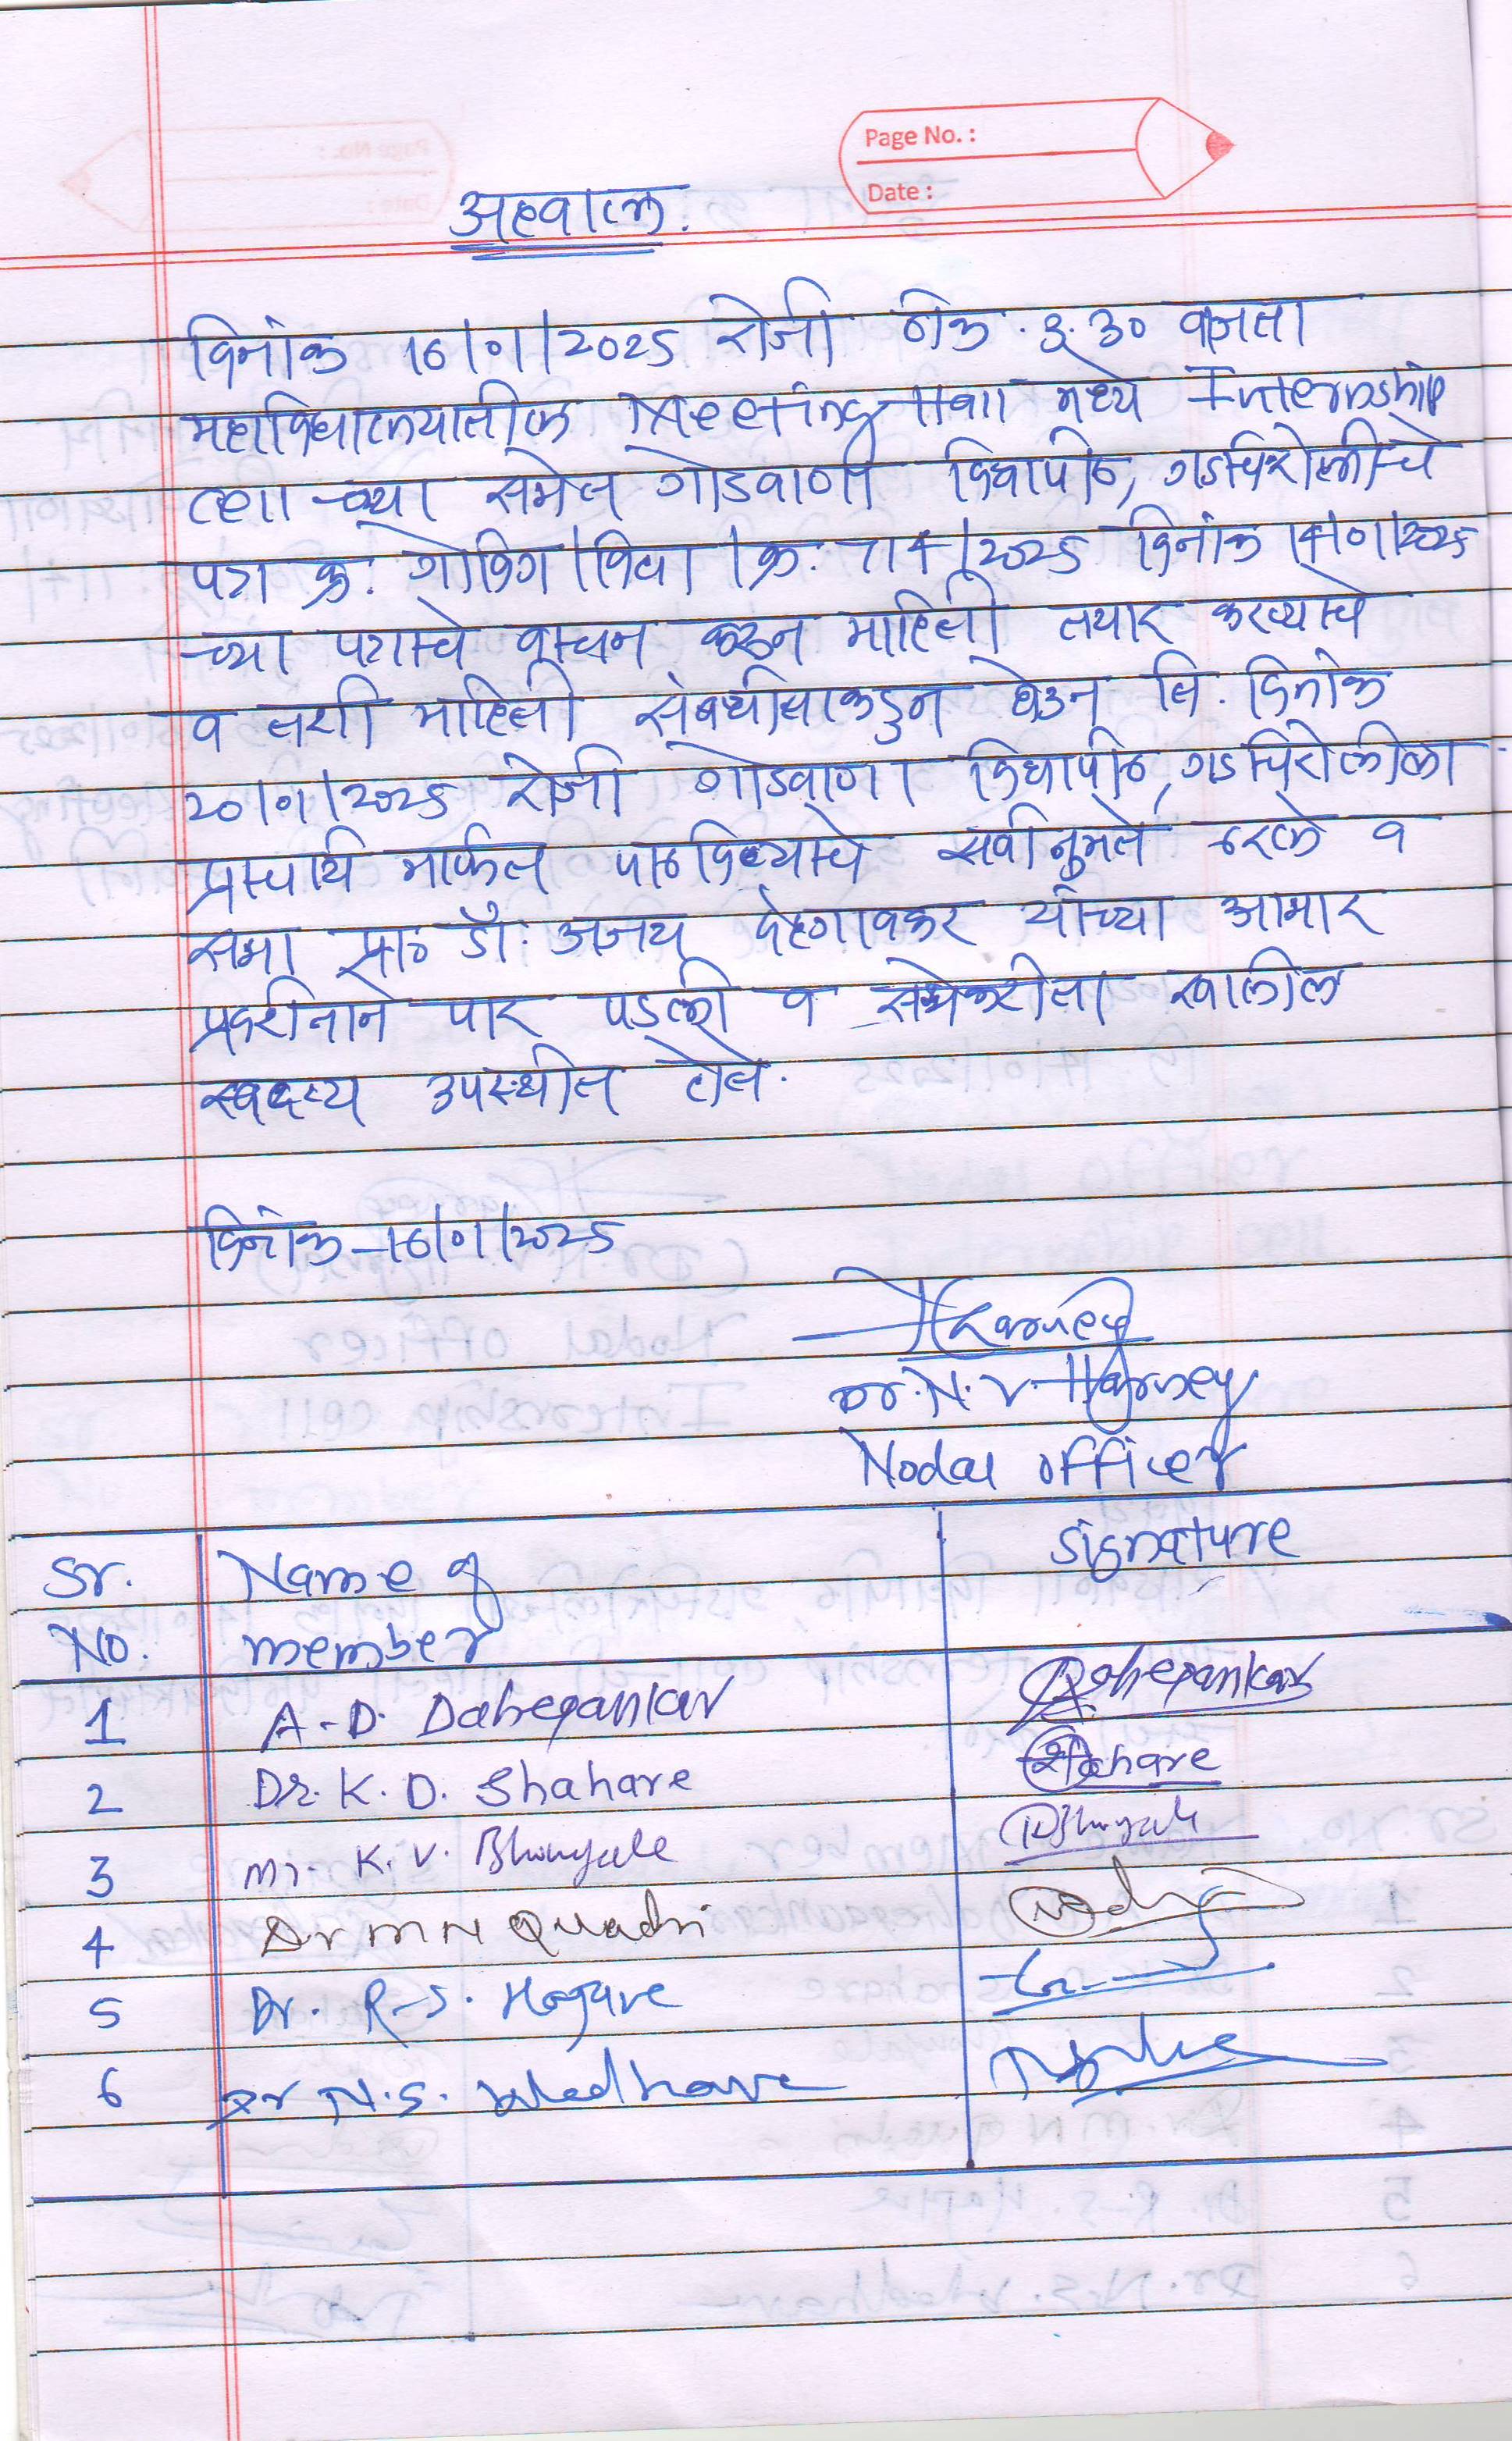 Page No. :
Date :
अहवाल.
दिनांक 16/01/2025 रोजी ठिक. 3.30 वाजता
महाविद्यालयातील Meeting Hall मध्ये Internship
च्या सभेत गोंडवाणा विद्यापीठ, गडचिरोलीचे
पत्र क्र. गोविग/विवा/क्र. 114/2025 दिनांक 14/01/2025
च्या पत्राचे वाचन करून माहिती तयार करण्याचे
व तशी माहिती संबधीताकडुन घेउन ति. दिनांक
20/01/2025 रोजी गोंडवाणा विद्यापीठ, गडचिरोलीला
प्राचार्य मार्फत पाठविण्याचे सर्वानुमते ठरले व
सभा प्रा. डॉ. अजय देहगावकर यांच्या आभार
प्रदर्शनाने पार पडली व सभेकरीता खालील
सदस्य उपस्थीत होते.
दिनांक - 16/01/2025
Harney
Dr. N. V. Harney
Nodal officer
Sr. Name of signature
No. member
1 A. D. Dahegankar Dahegankar
2 Dr. K. D. Shahare Shahare
3 Mr. K. V. Bhungale Bhungale
4 Dr M N Quadri
5 Dr. R. S. Hajare
6 Dr N. S. Wadhave